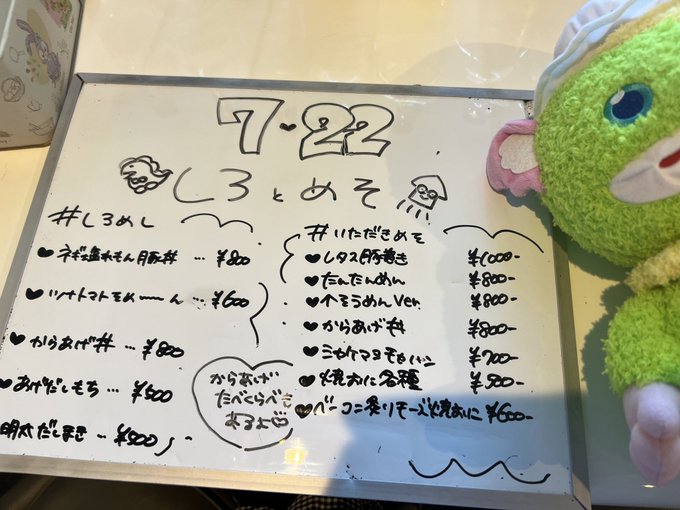 7・22
しろとめそ
#しろめし
♥ネギ塩れもん豚丼 … ¥800
♥ツナトマトそめーーん … ¥600
♥からあげ丼 … ¥800
♥あげだしもち … ¥500
明太だしまき … ¥500
からあげ
たべくらべも
あるよ♡
#いただきめそ
♥レタス豚巻き ¥1000-
♥たんたんめん ¥800-
♥〃そうめんVer. ¥800-
♥からあげ丼 ¥800-
♥ ¥700-
♥焼おに各種 ¥500-
♥ベーコン炙りチーズ焼おに ¥600-